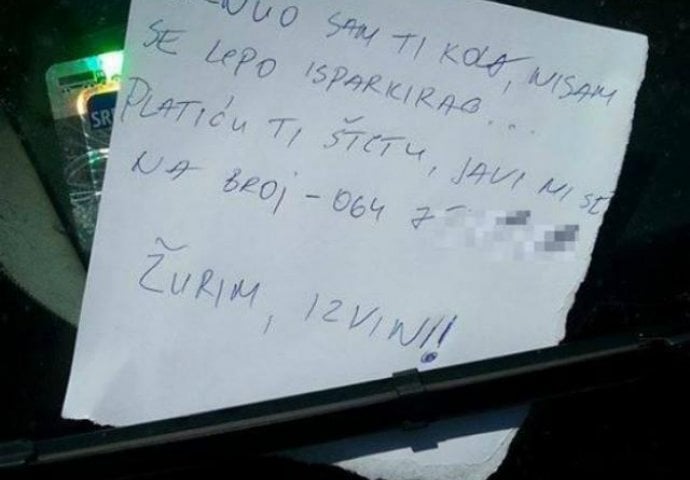 SAM TI KOLA, NISAM
SE LEPO ISPARKIRAO...
PLATIĆU TI ŠTETU, JAVI MI SE
NA BROJ - 064 7
ŽURIM, IZVIN!!
SR